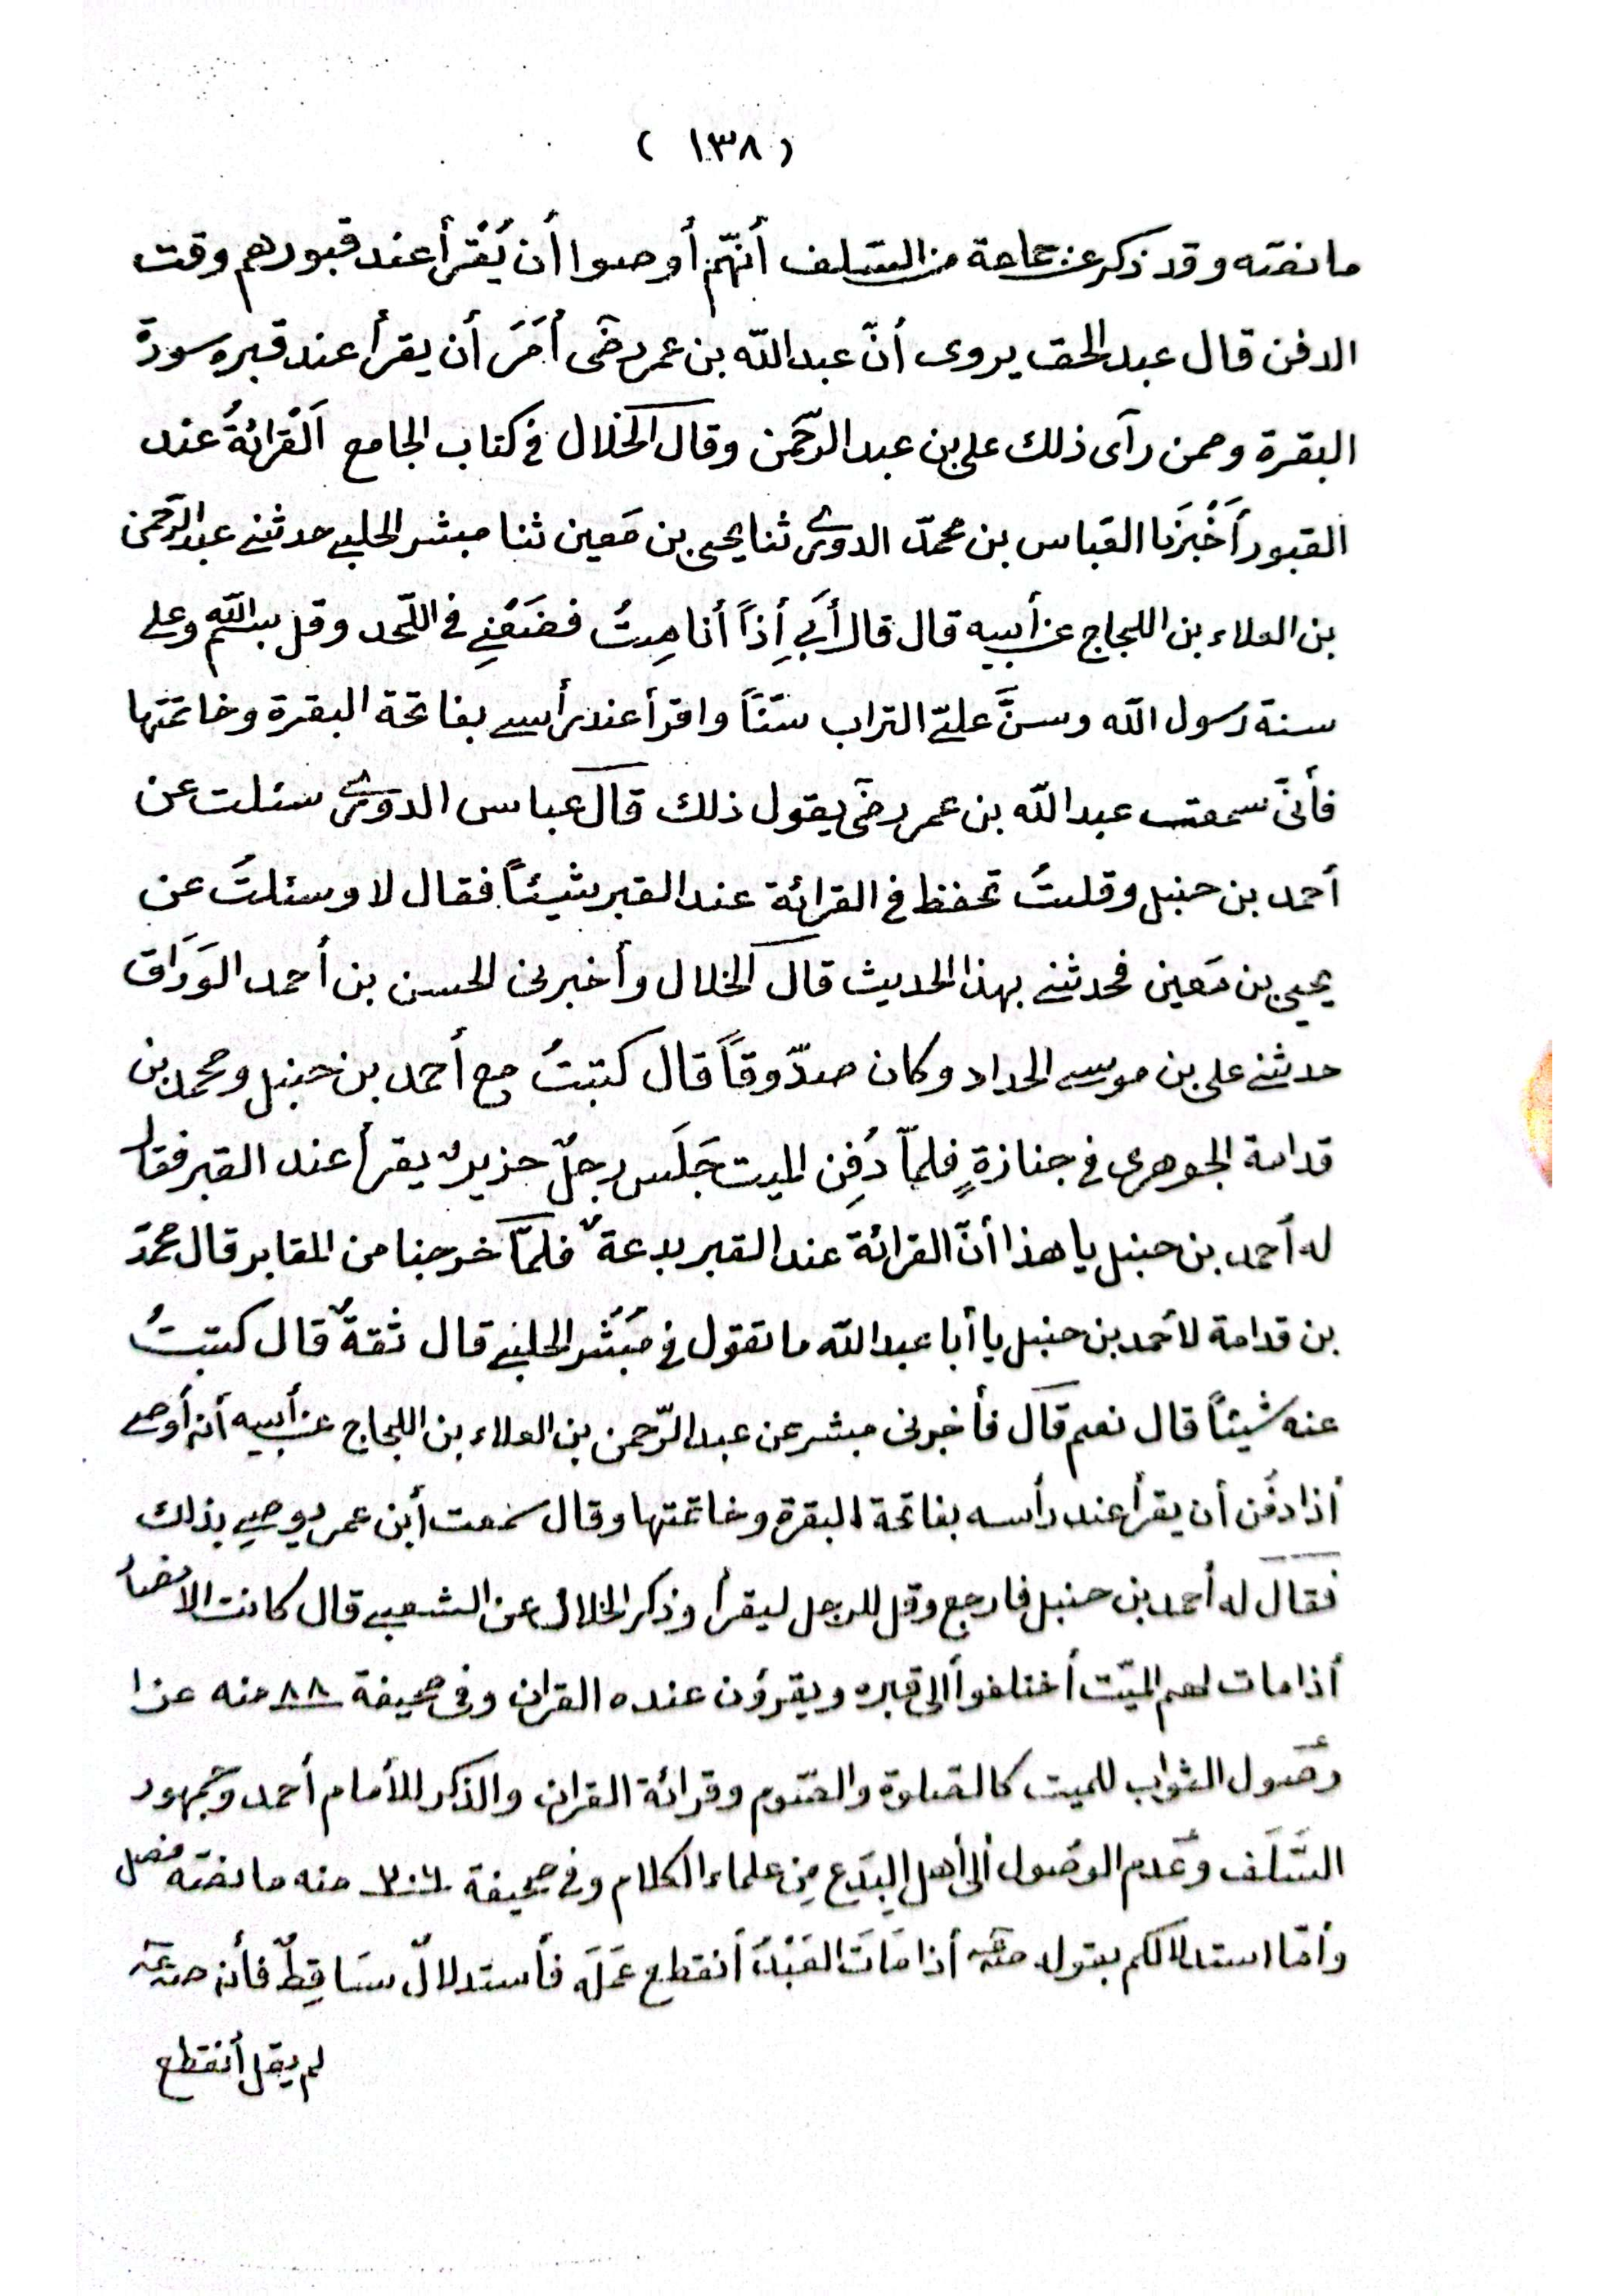 ( ١٣٨ )
ما نصّه وقد ذكر عن جماعة من السّلف أنّهم أوصوا أن يُقْرأ عند قبورهم وقت
الدفن قال عبد الحق يروى أنّ عبد الله بن عمر رضى أمَرَ أن يقرأ عند قبره سورة
البقرة وممن رآى ذلك على بن عبد الرّحمن وقال الخلال فى كتاب الجامع اَلْقرائةُ عند
القبور أَخْبَرَنا العَباس بن محمّد الدورى ثنا يحيى بن مَعين ثنا مبشر الحلبى حدثنى عبد الرّحمن
بن العلاء بن اللجاج عن أبيه قال قال أَبى إِذاً أنا مِتُ فضَعْنِى فى اللّحد وقل بسم الله وعلى
سنة رسول الله وسنَّ علىّ التراب سَنّاً واقرأ عند رأسى بفاتحة البقرة وخاتمتها
فأنّى سمعت عبد الله بن عمر رضى يقول ذلك قال عباس الدورى سئلت عن
أحمد بن حنبل وقلتُ تحفظ فى القرائة عند القبر شيئاً فقال لا وسئلتُ عن
يحيى بن مَعين فحدثنى بهذا الحديث قال الخلال وأخبرنى الحسن بن أحمد الوَرَاق
حدثنى على بن موسى الحداد وكان صدّوقاً قال كتبتُ مع أحمد بن حنبل ومحمد بن
قدامة الجوهرى فى جنازةٍ فلمّا دُفِن الميت جَلَس رجلٌ ضريرٌ يقرأ عند القبر فقال
له أحمد بن حنبل يا هذا أنّ القرائة عند القبر بدعةٌ فلمّا خرجنا من المقابر قال محمّد
بن قدامة لأحمد بن حنبل يا أبا عبد الله ما تقول فى مُبَشّر الحلبى قال ثقةٌ قال كتبتُ
عنه شيئاً قال نعم قال فأخبرنى مبشر عن عبد الرّحمن بن العلاء بن اللجاج عن أبيه أنه أوصى
أذا دفُن أن يقرأ عند رأسه بفاتحة البقرة وخاتمتها وقال سمعت أبن عمر يوصى بذلك
فقال له أحمد بن حنبل فارجع وقل للرجل ليقرأ وذكر الخلال عن الشعبى قال كانت الأنصار
أذا مات لهم الميّت أختلفوا ألى قبره ويقرؤن عنده القران وفى صحيفة ٨٨ منه عزا
وصول الثواب للميت كالصلوة والصّوم وقرائة القران والذكر للأمام أحمد وجمهور
السَّلَف وعَدم الوصُول ألى أهل البِدَع مِن علماء الكلام وفى صحيفة منه ما نصّه فصل
وأمّا استدلالكم بقوله أذا مَاتَ العَبْدُ أنقطع عَمَلَه فأستدلالٌ سَاقِطٌ فأنه
لم يقل أنقطع